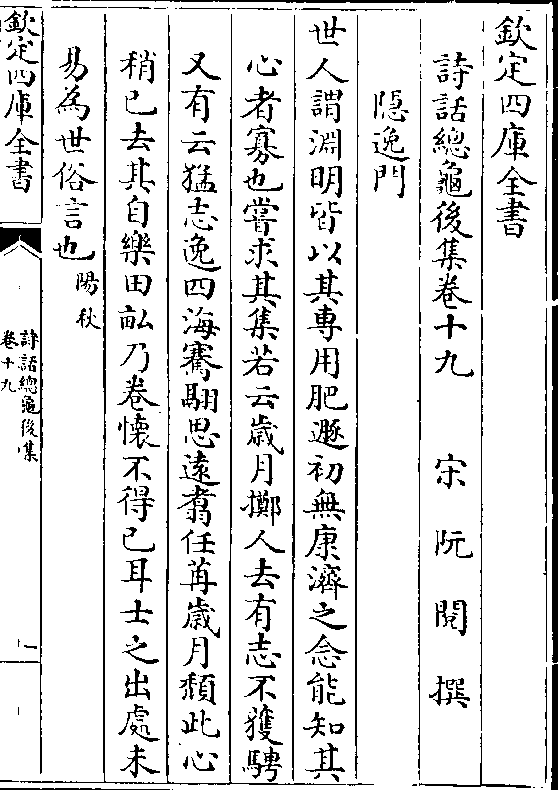 欽定四庫全書
詩話總龜後集卷十九　宋　阮　閱　撰
隠逸門
世人謂淵明皆以其專用肥遯初無康濟之念能知其
心者寡也嘗求其集若云歳月擲人去有志不獲騁
又有云猛志逸四海騫翮思遠翥任苒歳月頽此心
稍已去其自樂田畝乃卷懐不得已耳士之出處未
易為世俗言也陽秋
欽定四庫全書
詩話總龜後集
卷十九
一